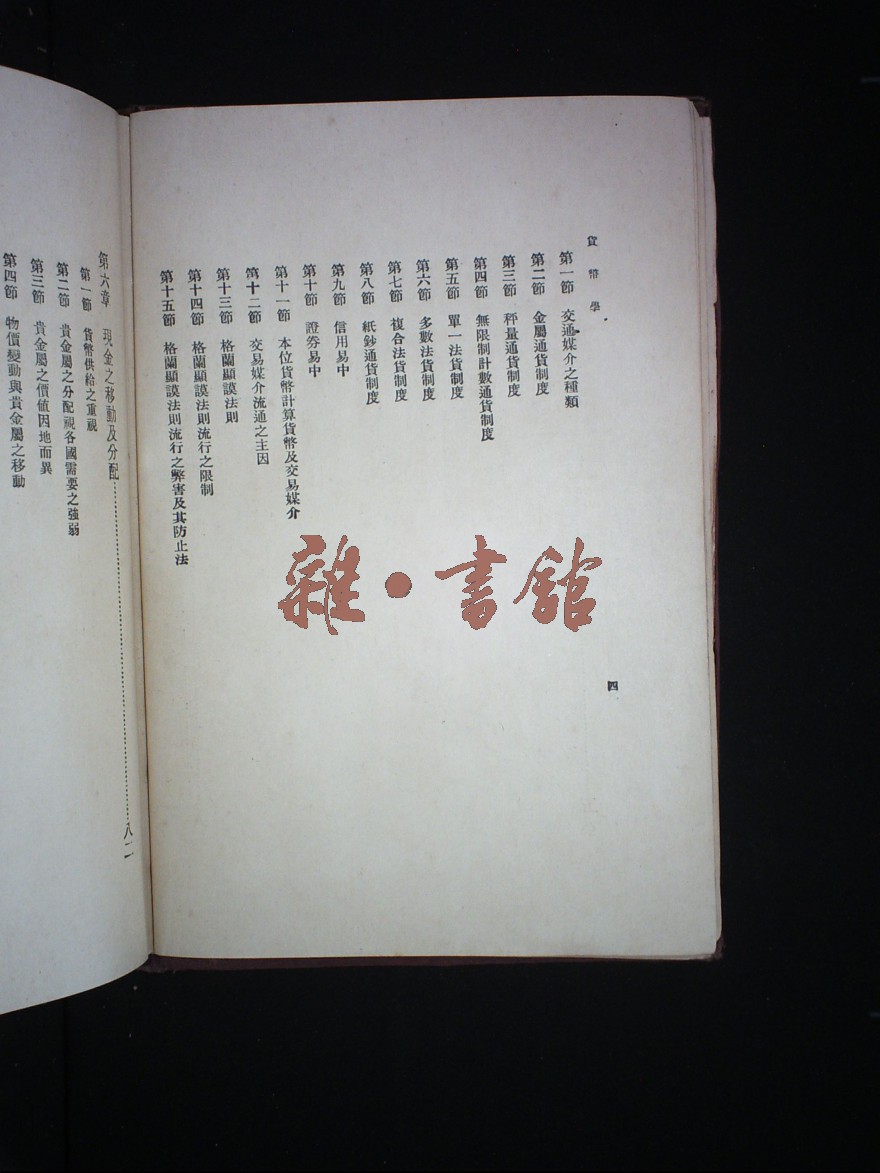 貨幣學
第一節 交通媒介之種類
第二節 金屬通貨制度
第三節 秤量通貨制度
第四節 無限制計數通貨制度
第五節 單一法貨制度
第六節 多數法貨制度
第七節 複合法貨制度
第八節 紙鈔通貨制度
第九節 信用易中
第十節 證券易中
第十一節 本位貨幣計算貨幣及交易媒介
第十二節 交易媒介流通之主因
第十三節 格蘭顯謨法則
第十四節 格蘭顯謨法則流行之限制
第十五節 格蘭顯謨法則流行之弊害及其防止法
四
第六章 現金之移動及分配……八二
第一節 貨幣供給之重視
第二節 貴金屬之分配視各國需要之強弱
第三節 貴金屬之價值因地而異
第四節 物價變動與貴金屬之移動
雜·書館